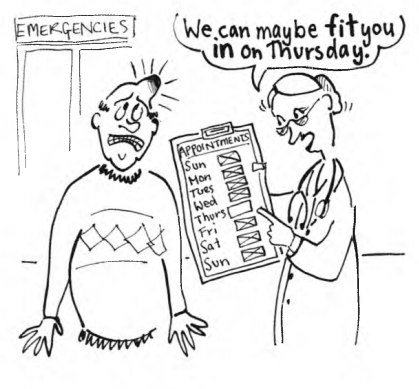 EMERGENCIES
We can maybe fit you
in on Thursday.
APPOINTMENTS
Sun
Mon
Tues
Wed
Thurs
Fri
Sat
Sun